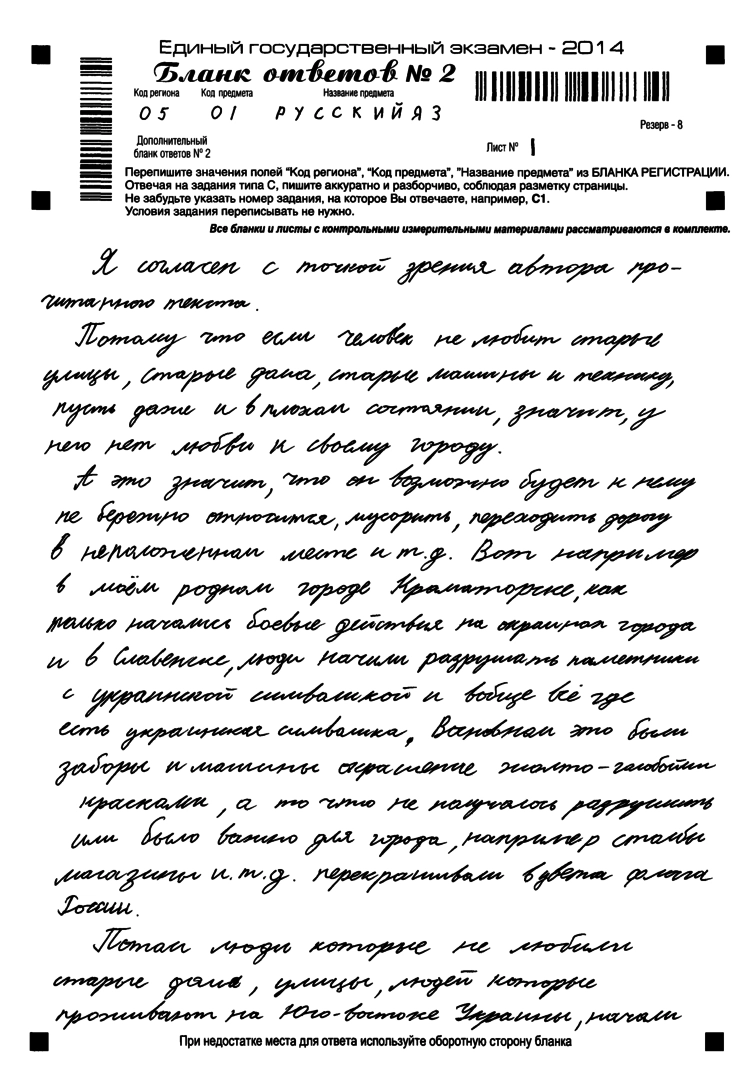 Единый государственный экзамен - 2014
Бланк ответов № 2
Код региона Код предмета Название предмета
05 01 РУССКИЙ ЯЗ
Резерв - 8
Дополнительный
бланк ответов № 2
Лист № 1
Перепишите значения полей "Код региона", "Код предмета", "Название предмета" из БЛАНКА РЕГИСТРАЦИИ.
Отвечая на задания типа С, пишите аккуратно и разборчиво, соблюдая разметку страницы.
Не забудьте указать номер задания, на которое Вы отвечаете, например, С1.
Условия задания переписывать не нужно.
Все бланки и листы с контрольными измерительными материалами рассматриваются в комплекте.
Я согласен с точкой зрения автора про-
читанного текста.
Потому что если человек не любит старые
улицы, старые дома, старые машины и технику,
пусть даже и в плохом состоянии, значит, у
него нет любви к своему городу.
А это значит, что он возможно будет к нему
не бережно относится, мусорить, переходить дорогу
в неположенном месте и т.д. Вот например
в моём родном городе Краматорске, как
только начались боевые действия на окраинах города
и в Славенске, люди начили разрушать паметники
с украинской символикой и вобще всё где
есть украинская символика. Восновном это были
заборы и машины окрашение жолто-галобыми
красками, а то что не получалось разрушить
или было важно для города, например столбы
магазины и.т.д. перекрашивали в цвета флага
России.
Потом люди которые не любили
старые дома, улицы, людей которые
проживают на Юго-востоке Украины, начали
При недостатке места для ответа используйте оборотную сторону бланка